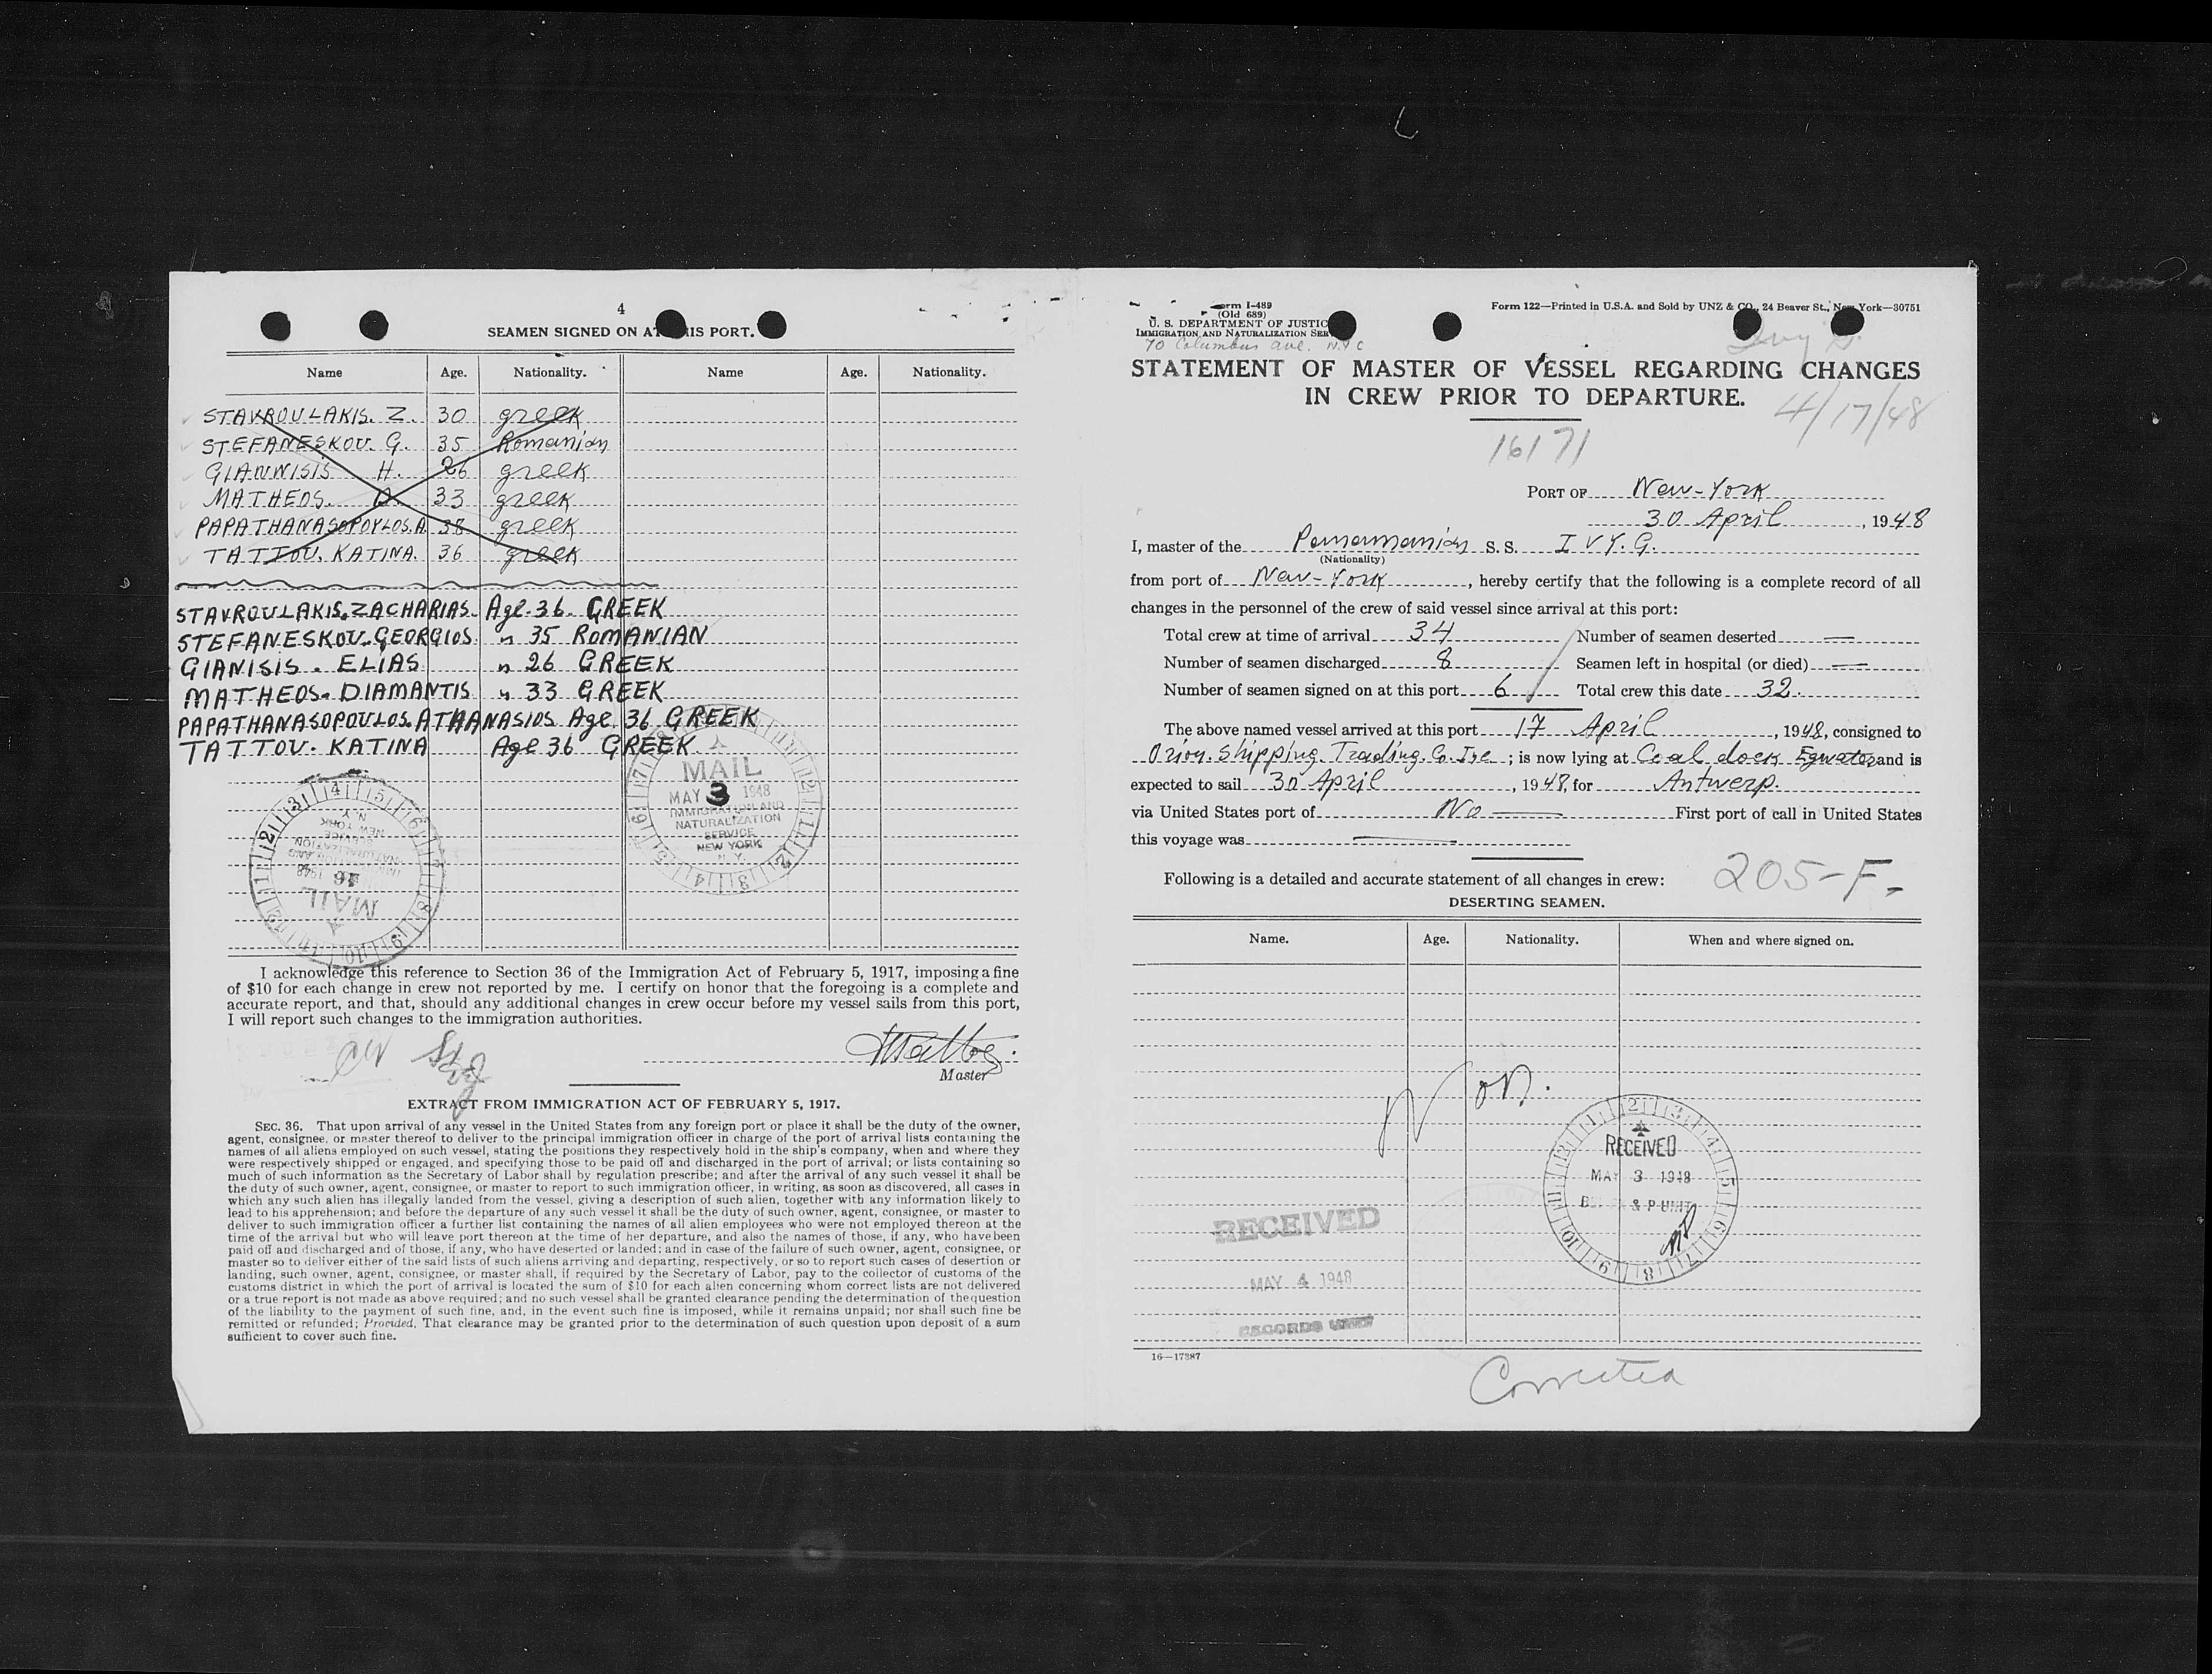 4
SEAMEN SIGNED ON AT THIS PORT.
Name Age. Nationality. Name Age. Nationality.
STAVROULAKIS. Z. 30 greek
STEFANESKOU. G. 35 Romanian
GIANNISIS H. 26 greek
MATHEOS. D. 33 greek
PAPATHANASOPOYLOS. A. 38 greek
TATTOU. KATINA. 36 greek
STAVROULAKIS. ZACHARIAS. Age. 36. GREEK
STEFANESKOU. GEORGIOS. " 35 ROMANIAN
GIANISIS. ELIAS " 26 GREEK
MATHEOS. DIAMANTIS " 33 GREEK
PAPATHANASOPOULOS. ATHANASIOS Age 36 GREEK
TATTOU. KATINA Age 36 GREEK
MAIL
MAY 3 1948
IMMIGRATION AND
NATURALIZATION
SERVICE
NEW YORK
N. Y.
MAIL
16 1948
IMMIGRATION AND
NATURALIZATION
SERVICE
NEW YORK
N. Y.
I acknowledge this reference to Section 36 of the Immigration Act of February 5, 1917, imposing a fine
of $10 for each change in crew not reported by me. I certify on honor that the foregoing is a complete and
accurate report, and that, should any additional changes in crew occur before my vessel sails from this port,
I will report such changes to the immigration authorities.
Master
EXTRACT FROM IMMIGRATION ACT OF FEBRUARY 5, 1917.
SEC. 36. That upon arrival of any vessel in the United States from any foreign port or place it shall be the duty of the owner,
agent, consignee, or master thereof to deliver to the principal immigration officer in charge of the port of arrival lists containing the
names of all aliens employed on such vessel, stating the positions they respectively hold in the ship's company, when and where they
were respectively shipped or engaged, and specifying those to be paid off and discharged in the port of arrival; or lists containing so
much of such information as the Secretary of Labor shall by regulation prescribe; and after the arrival of any such vessel it shall be
the duty of such owner, agent, consignee, or master to report to such immigration officer, in writing, as soon as discovered, all cases in
which any such alien has illegally landed from the vessel, giving a description of such alien, together with any information likely to
lead to his apprehension; and before the departure of any such vessel it shall be the duty of such owner, agent, consignee, or master to
deliver to such immigration officer a further list containing the names of all alien employees who were not employed thereon at the
time of the arrival but who will leave port thereon at the time of her departure, and also the names of those, if any, who have been
paid off and discharged and of those, if any, who have deserted or landed; and in case of the failure of such owner, agent, consignee, or
master so to deliver either of the said lists of such aliens arriving and departing, respectively, or so to report such cases of desertion or
landing, such owner, agent, consignee, or master shall, if required by the Secretary of Labor, pay to the collector of customs of the
customs district in which the port of arrival is located the sum of $10 for each alien concerning whom correct lists are not delivered
or a true report is not made as above required; and no such vessel shall be granted clearance pending the determination of the question
of the liability to the payment of such fine, and, in the event such fine is imposed, while it remains unpaid; nor shall such fine be
remitted or refunded; Provided, That clearance may be granted prior to the determination of such question upon deposit of a sum
sufficient to cover such fine.
Form I-489
(Old 689)
U. S. DEPARTMENT OF JUSTICE
IMMIGRATION AND NATURALIZATION SER
70 Columbus ave. N.Y.C
Form 122—Printed in U.S.A. and Sold by UNZ & CO., 24 Beaver St., New York—30751
Ivy G.
STATEMENT OF MASTER OF VESSEL REGARDING CHANGES
IN CREW PRIOR TO DEPARTURE.
4/17/48
16171
PORT OF New-York
30 April, 1948
I, master of the Panamanian S. S. IVY. G.
(Nationality)
from port of New-York, hereby certify that the following is a complete record of all
changes in the personnel of the crew of said vessel since arrival at this port:
Total crew at time of arrival 34 Number of seamen deserted —
Number of seamen discharged 8 Seamen left in hospital (or died) —
Number of seamen signed on at this port 6 Total crew this date 32.
The above named vessel arrived at this port 17 April, 1948, consigned to
Orion. Shipping. Trading. Co. Inc; is now lying at Coal dock and is
expected to sail 30 April, 1948, for Antwerp.
via United States port of No — First port of call in United States
this voyage was —
Following is a detailed and accurate statement of all changes in crew:
205-F-
DESERTING SEAMEN.
Name. Age. Nationality. When and where signed on.
Non.
RECEIVED
MAY 3 1948
& P UNIT
RECEIVED
MAY 4 1948
RECORDS
16—17387
Corrected